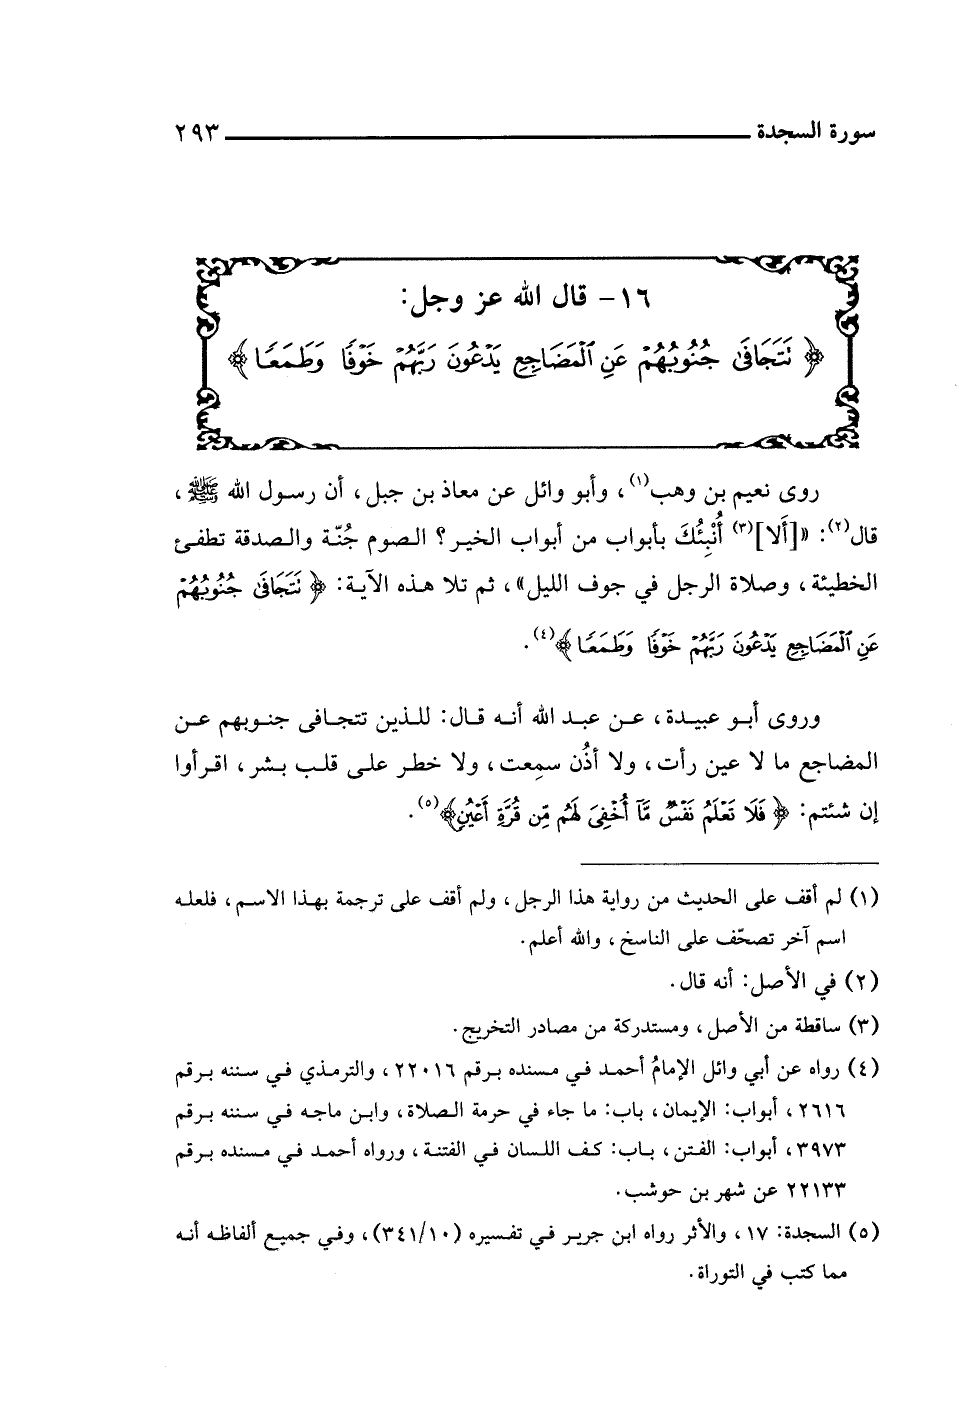 سورة السجدة ٢٩٣
١٦- قال الله عز وجل:
﴿ نَتَجَافَىٰ جُنُوبُهُمْ عَنِ ٱلْمَضَاجِعِ يَدْعُونَ رَبَّهُمْ خَوْفًا وَطَمَعًا ﴾
روى نعيم بن وهب(١)، وأبو وائل عن معاذ بن جبل، أن رسول الله ﷺ،
قال(٢): «[أَلا](٣) أُنْبِئُكَ بأبواب من أبواب الخير؟ الصوم جُنّة والصدقة تطفئ
الخطيئة، وصلاة الرجل في جوف الليل»، ثم تلا هذه الآية: ﴿ نَتَجَافَىٰ جُنُوبُهُمْ
عَنِ ٱلْمَضَاجِعِ يَدْعُونَ رَبَّهُمْ خَوْفًا وَطَمَعًا ﴾(٤).
وروى أبو عبيدة، عن عبد الله أنه قال: للذين تتجافى جنوبهم عن
المضاجع ما لا عين رأت، ولا أذُن سمِعت، ولا خطر على قلب بشر، اقرأوا
إن شئتم: ﴿ فَلَا تَعْلَمُ نَفْسٌ مَّآ أُخْفِىَ لَهُم مِّن قُرَّةِ أَعْيُنٍ ﴾(٥).
(١) لم أقف على الحديث من رواية هذا الرجل، ولم أقف على ترجمة بهذا الاسم، فلعله
اسم آخر تصحّف على الناسخ، والله أعلم.
(٢) في الأصل: أنه قال.
(٣) ساقطة من الأصل، ومستدركة من مصادر التخريج.
(٤) رواه عن أبي وائل الإمامُ أحمد في مسنده برقم ٢٢٠١٦، والترمذي في سننه برقم
٢٦١٦، أبواب: الإيمان، باب: ما جاء في حرمة الصلاة، وابن ماجه في سننه برقم
٣٩٧٣، أبواب: الفتن، باب: كف اللسان في الفتنة، ورواه أحمد في مسنده برقم
٢٢١٣٣ عن شهر بن حوشب.
(٥) السجدة: ١٧، والأثر رواه ابن جرير في تفسيره (٣٤١/١٠)، وفي جميع ألفاظه أنه
مما كتب في التوراة.